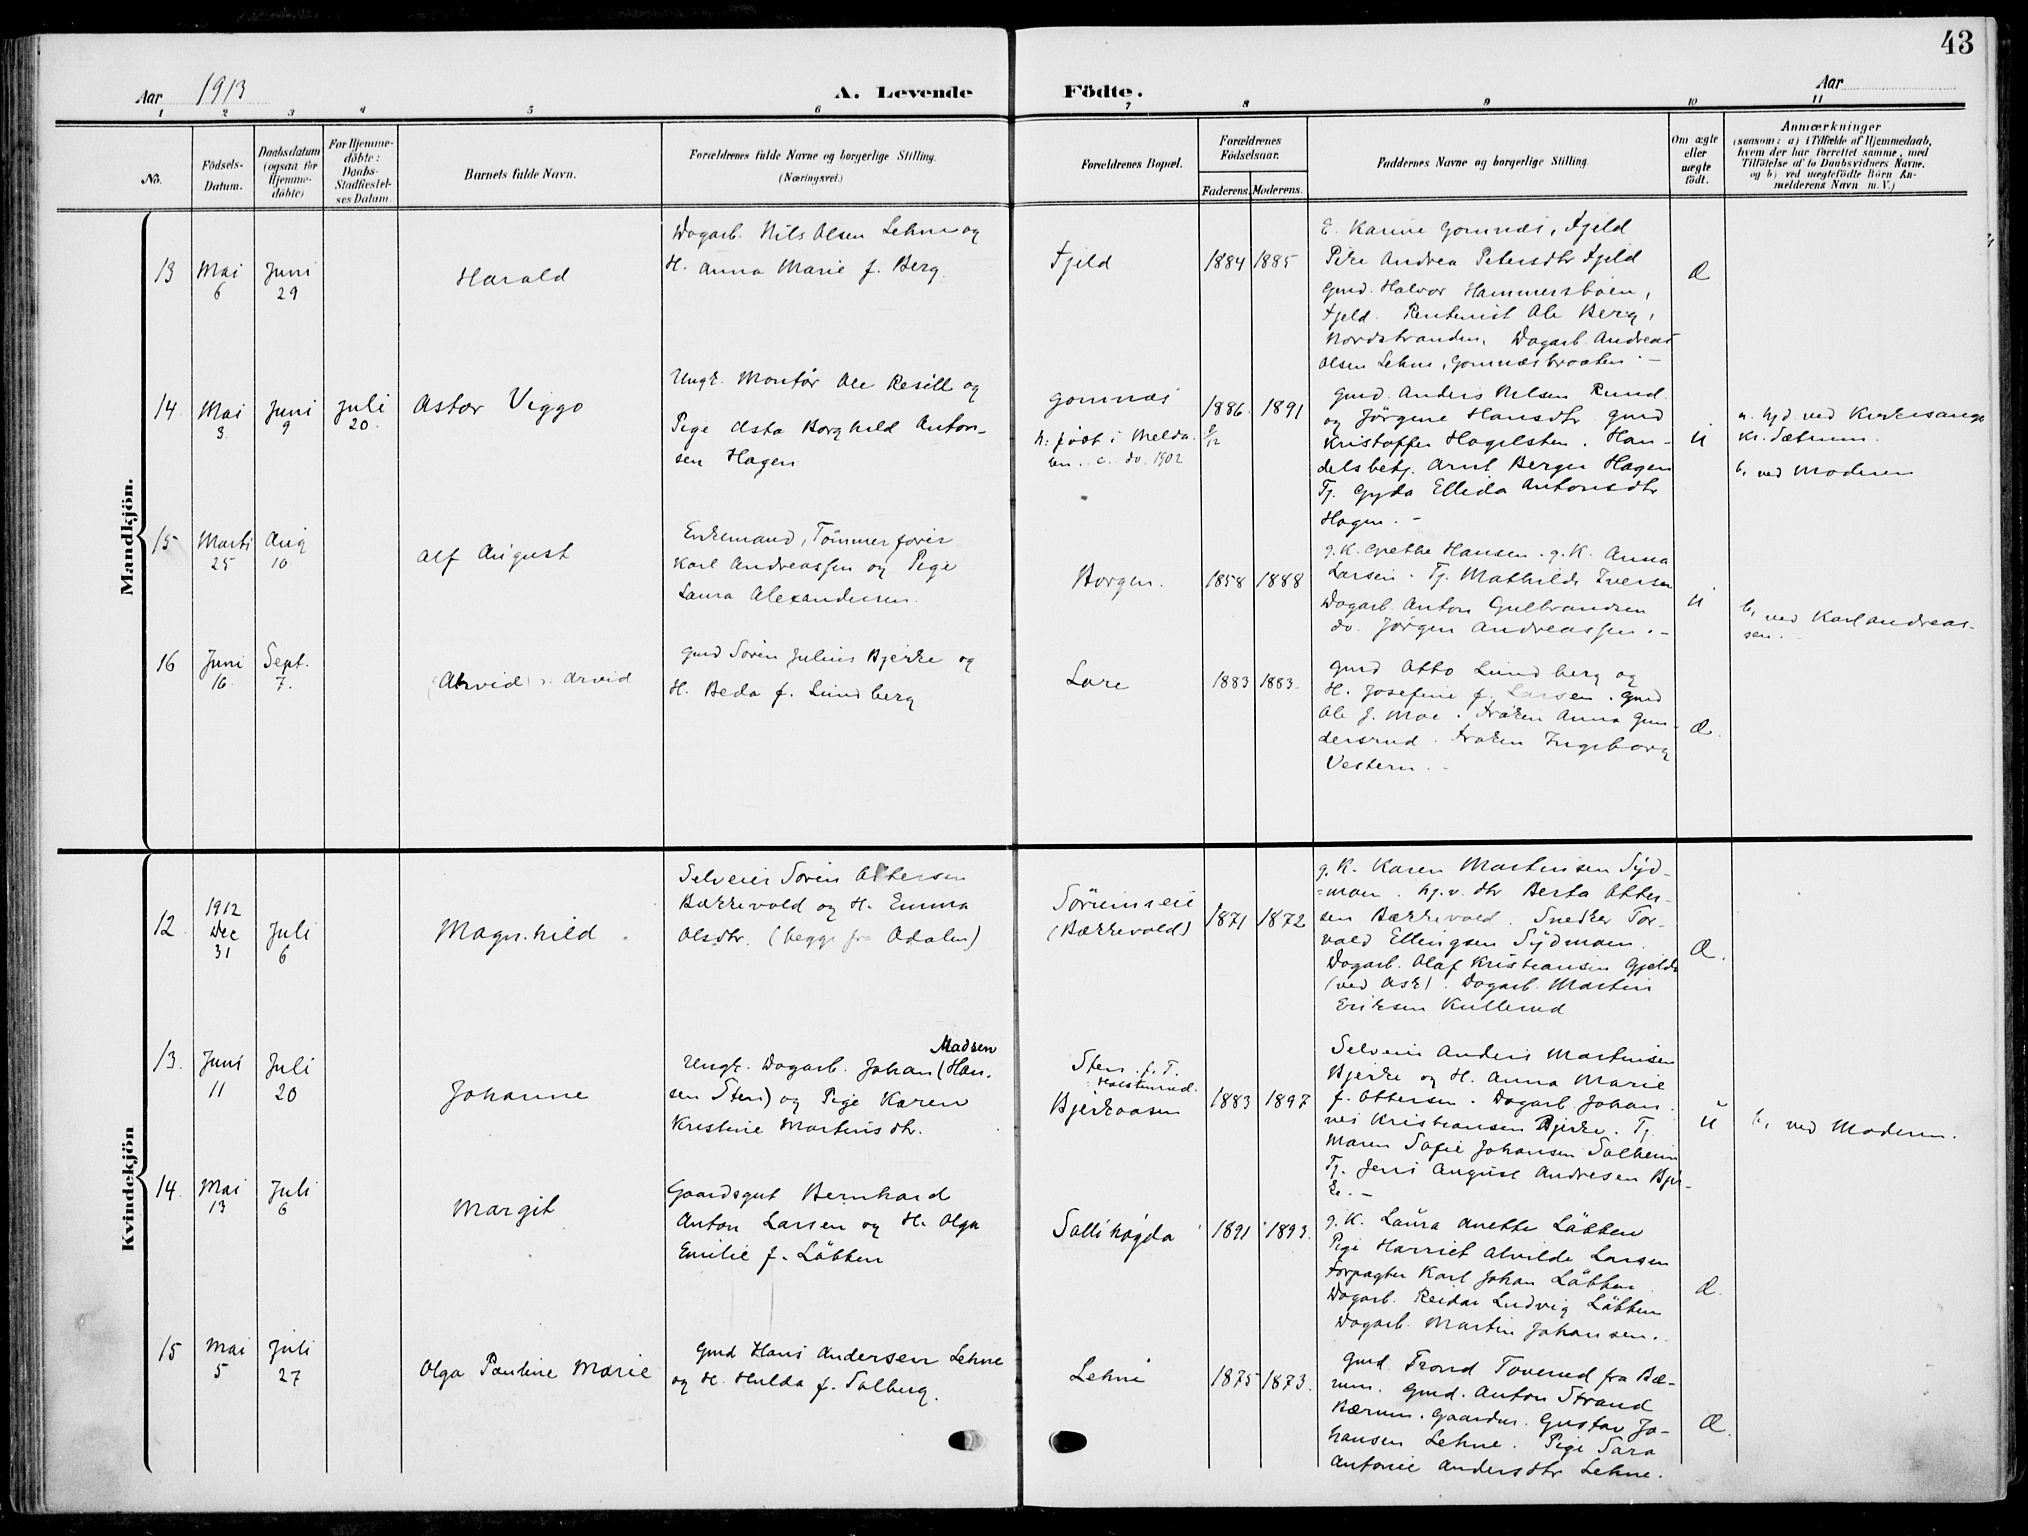 43
Aar 1913
A. Levende
Födte.
Aar
1 2 3 4 5 6 7 8 9 10 11
No.
Födsels-
Datum.
Daabsdatum
(ogsaa for
Hjemme-
döbte)
For Hjemme-
döbte:
Daabs-
Stadfæstel-
ses Datum.
Barnets fulde Navn.
Forældrenes fulde Navne og borgerlige Stilling.
(Næringsvei.)
Forældrenes Bopæl.
Forældrenes
Födselsaar.
Faderens. Moderens.
Faddernes Navne og borgerlige Stilling.
Om ægte
eller
uægte
födt.
Anmærkninger
(saasom: a) i Tilfælde af Hjemmedaab,
hvem der har forrettet samme, med
Tilföielse af to Daabsvidners Navne.
og b) ved uægtefödte Börn An-
melderens Navn m. V.)
Mandkjön.
13
Mai
6
Juni
29
Harald
Dagarb. Nils Olsen Lehne og
H. Anna Marie f. Berg.
Fjeld
1884 1885
E. Karine Gomnæs, Fjeld
Pike Andrea Petersdtr Fjeld
Gmd. Halvor Hammersbøen,
Fjeld. Rentenist Ole Berg,
Nordstranden, Dagarb. Andreas
Olsen Lehne, Gomnæsbraaten. –
Æ
14
Mai
3.
Juni
9
Juli
20.
Astor Viggo
Ungk. Montør Ole Resell og
Pige Asta Borghild Anton-
sen Hagen
Gomnæs
h: født i Melda-
len. c. do. 1902
1886 1891
9/12
Gmd. Anders Nilsen Rund
og Jørgine Hansdtr Gmd
Kristoffer Hagelsten. Han-
delsbetj. Arnt Berger Hagen
Tj. Gyda Ellida Antonsdtr
Hagen. –
U
a. hjd. ved Kirkesanger
Kr. Sætrum.
b, ved Moderen
15
Marts
25
Aug
10
Alf August
Enkemand, Tømmerforer
Karl Andreassen og Pige
Laura Alexandersen.
Borgen.
1858 1888
g.K. Grethe Hansen. g.K. Anna
Larsen. Tj. Mathilde Iversen
Dagarb. Anton Gulbrandsen
do. Jørgen Andreassen. –
U
b, ved Karl Andreas-
sen.
16
Juni
16.
Sept.
7.
(Ahvid) : Arvid
Gmd Søren Julius Bjerke og
H. Beda f. Lundberg
Lore
1883 1883.
Gmd Otto Lundberg og
H. Josefine f. Larsen. Gmd
Ole J. Moe. Frøken Anna Gun-
dersrud. Frøken Ingeborg
Vestern. –
Æ.
Kvindekjön
12.
1912
Dec
31
Juli
6
Magnhild.
Selveier Søren Ottersen
Bækkevold og H. Emma
Olsdtr. (begge fra Ådalen)
Sørumseie
(Bækkevold)
1871 1872
g.K. Karen Martinsen Syd-
=moen. hj.v. dtr Berta Otter-
sen Bækkevold. Snedker Tor-
vald Ellingsen Sydmoen.
Dagarb. Olaf Kristiansen Gjelds
(ved Ask). Dagarb. Martin
Eriksen Kullerud
Æ.
13.
Juni
11
Juli
20
Johanne
Madsen
Ungk. Dagarb. Johan (Han-
sen Sten) og Pige Karen
Kristine Martinsdtr.
Sten. f. T.
Holsterud.
Bjerkaasen
1883 1897
Selveier Anders Martinsen
Bjerke og H. Anna Marie
f. Ottersen. Dagarb. Johan-
nes Kristiansen Bjerke. Tj.
Maren Sofie Johansen Solheim
Tj. Jens August Andresen Bjer-
ke. –
U
b, ved Moderen.
14.
Mai
13
Juli
6
Margit
Gaardsgut Bernhard
Anton Larsen og H. Olga
Emilie f. Løbben
Sollihøgda
1891 1893.
g.K. Laura Anette Løbben
Pige Harriet Alvilde Larsen
Forpagter Karl Johan Løbben
Dagarb. Reidar Ludvig Løbben
Dagarb. Martin Johansen.
Æ.
15
Mai
5
Juli
27
Olga Pauline Marie
Gmd Hans Andersen Lehne
og H. Hulda f. Solberg.
Lehne
1875 1873.
Gmd. Trond Toverud fra Bæ-
rum. Gmd. Anton Strand
Bærum. Gaardbr. Gustav Jo-
hansen Lehne. Pige Sara
Antonie Andersdtr Lehne.
Æ.